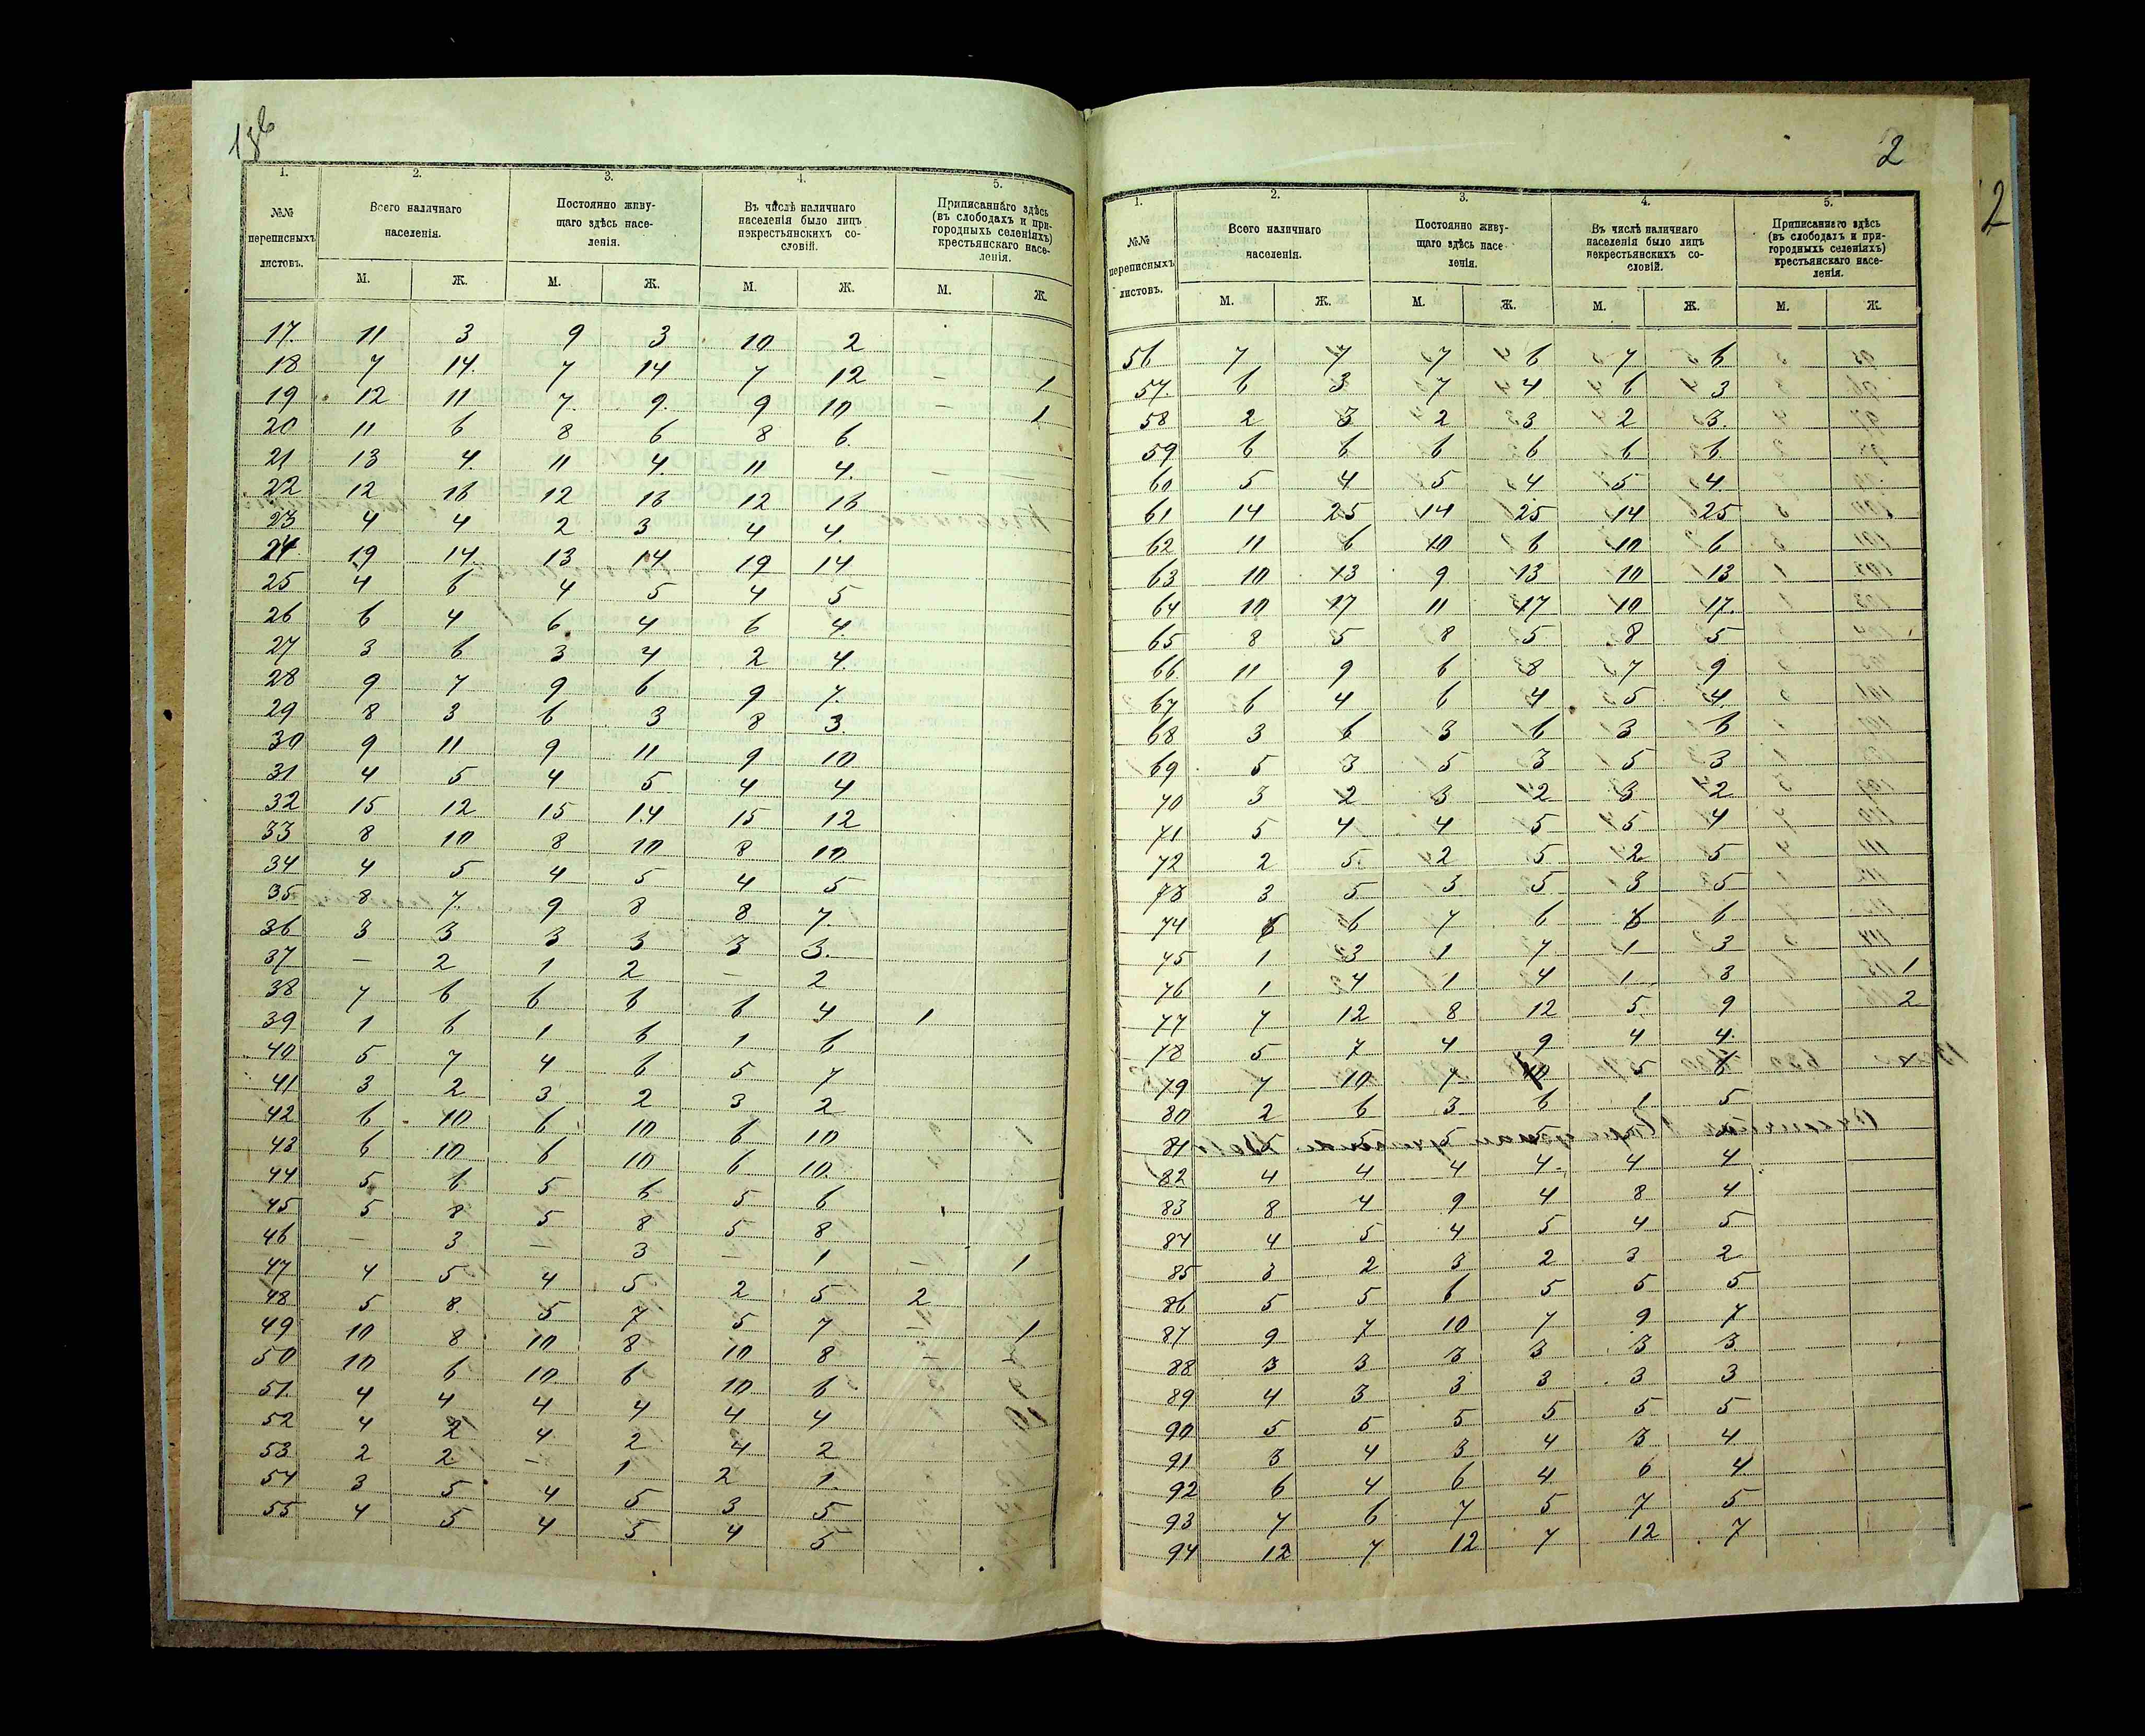 1об
1. 2. 3. 4. 5.
№№ переписныхъ листовъ. Всего наличнаго населенія. Постоянно живущаго здѣсь населенія. Въ числѣ наличнаго населенія было лицъ некрестьянскихъ сословій. Приписаннаго здѣсь (въ слободахъ и пригородныхъ селеніяхъ) крестьянскаго населенія.
М. Ж. М. Ж. М. Ж. М. Ж.
17. 11 3 9 3 10 2
18 7 14. 7 14 7 12 — 1
19 12 11 7. 9. 9 10 — 1
20 11 6 8 6 8 6.
21 13 4. 11 4. 11 4. —
22 12 16 12 16 12 16
23 4 4 2 3 4 4.
24 19 14. 13 14 19 14
25 4 6 4 5 4 5
26 6 4 6. 4 6 4.
27 3 6 3 4 2 4.
28 9 7 9 6 9 7.
29 8 3 6 3 8 3.
30 9 11 9 11 9 10
31 4 5 4 5 4 4
32 15 12 15 14 15 12
33 8 10 8 10 8 10
34 4 5 4 5 4 5
35 8 7. 9 8 8 7.
36 3 3 3 3 3 3.
37 — 2 1 2 — 2
38 7 6 6 6 6 4 1
39 1 6 1 6 1 6
40 5 7 4 6 5 7
41 3 2 3 2 3 2
42 6 10 6 10 6 10
43 6 10 6 10 6 10.
44 5 6 5 6 5 6
45 5 8 5 8 5 8
46 — 3 — 3 — 1 — 1
47 4 5 4 5 2 5 2
48 5 8 5 7 5 7 — 1
49 10 8 10 8 10 8
50 10 6 10 6 10 6
51. 4 4 4 4 4 4
52 4 2 4 2 4 2
53 2 2 — 1 2 1.
54 3 5 4 5 3 5
55 4 5 4 5 4 5
2
2
1. 2. 3. 4. 5.
№№ переписныхъ листовъ. Всего наличнаго населенія. Постоянно живущаго здѣсь населенія. Въ числѣ наличнаго населенія было лицъ некрестьянскихъ сословій. Приписаннаго здѣсь (въ слободахъ и пригородныхъ селеніяхъ) крестьянскаго населенія.
М. Ж. М. Ж. М. Ж. М. Ж.
56 7 7 7 6 7 6
57. 6 3 7 4 6 3
58 2 3 2 3 2 3.
59 6 6 6 6 6 6
60 5 4 5 4 5 4.
61 14 25 14 25 14 25
62 11 6 10 6 10 6
63 10 13 9 13 10 13
64 10 17 11 17 10 17.
65 8 5 8 5 8 5
66. 11 9 6 8 7 9
67 6 4 6 4 5 4.
68 3 6 3 6 3 6
69 5 3 5 3 5 3
70 3 2 3 2 3 2
71 5 4 4 5 5 4
72 2 5. 2 5 2 5
73 3 5 3 5 3 5
74 6 7 6 6
75 1 3 1 7. 1 3
76 1 4 1 4 1 3 1
77 7 12 8 12 5. 9 2
78 5 7 4 9 4 4.
79 7 10 7 10 5
80 2 6 3 6 1 5
81 5 5
82 4 4 4 4. 4 4
83 8 4 9 4 8 4
84 4 5 4 5 4 5
85 3 2 3 2 3 2
86 5 5 6 5 5 5
87 9 7 10 7 9 7
88 3 3 3 3 3 3.
89 4 3 3 3 3 3
90 5 5 5 5 5 5
91 3 4 3 4 3 4
92 6 4 6 4 6 4.
93 7 6 7 5 7 5
94 12 7 12 7 12 7